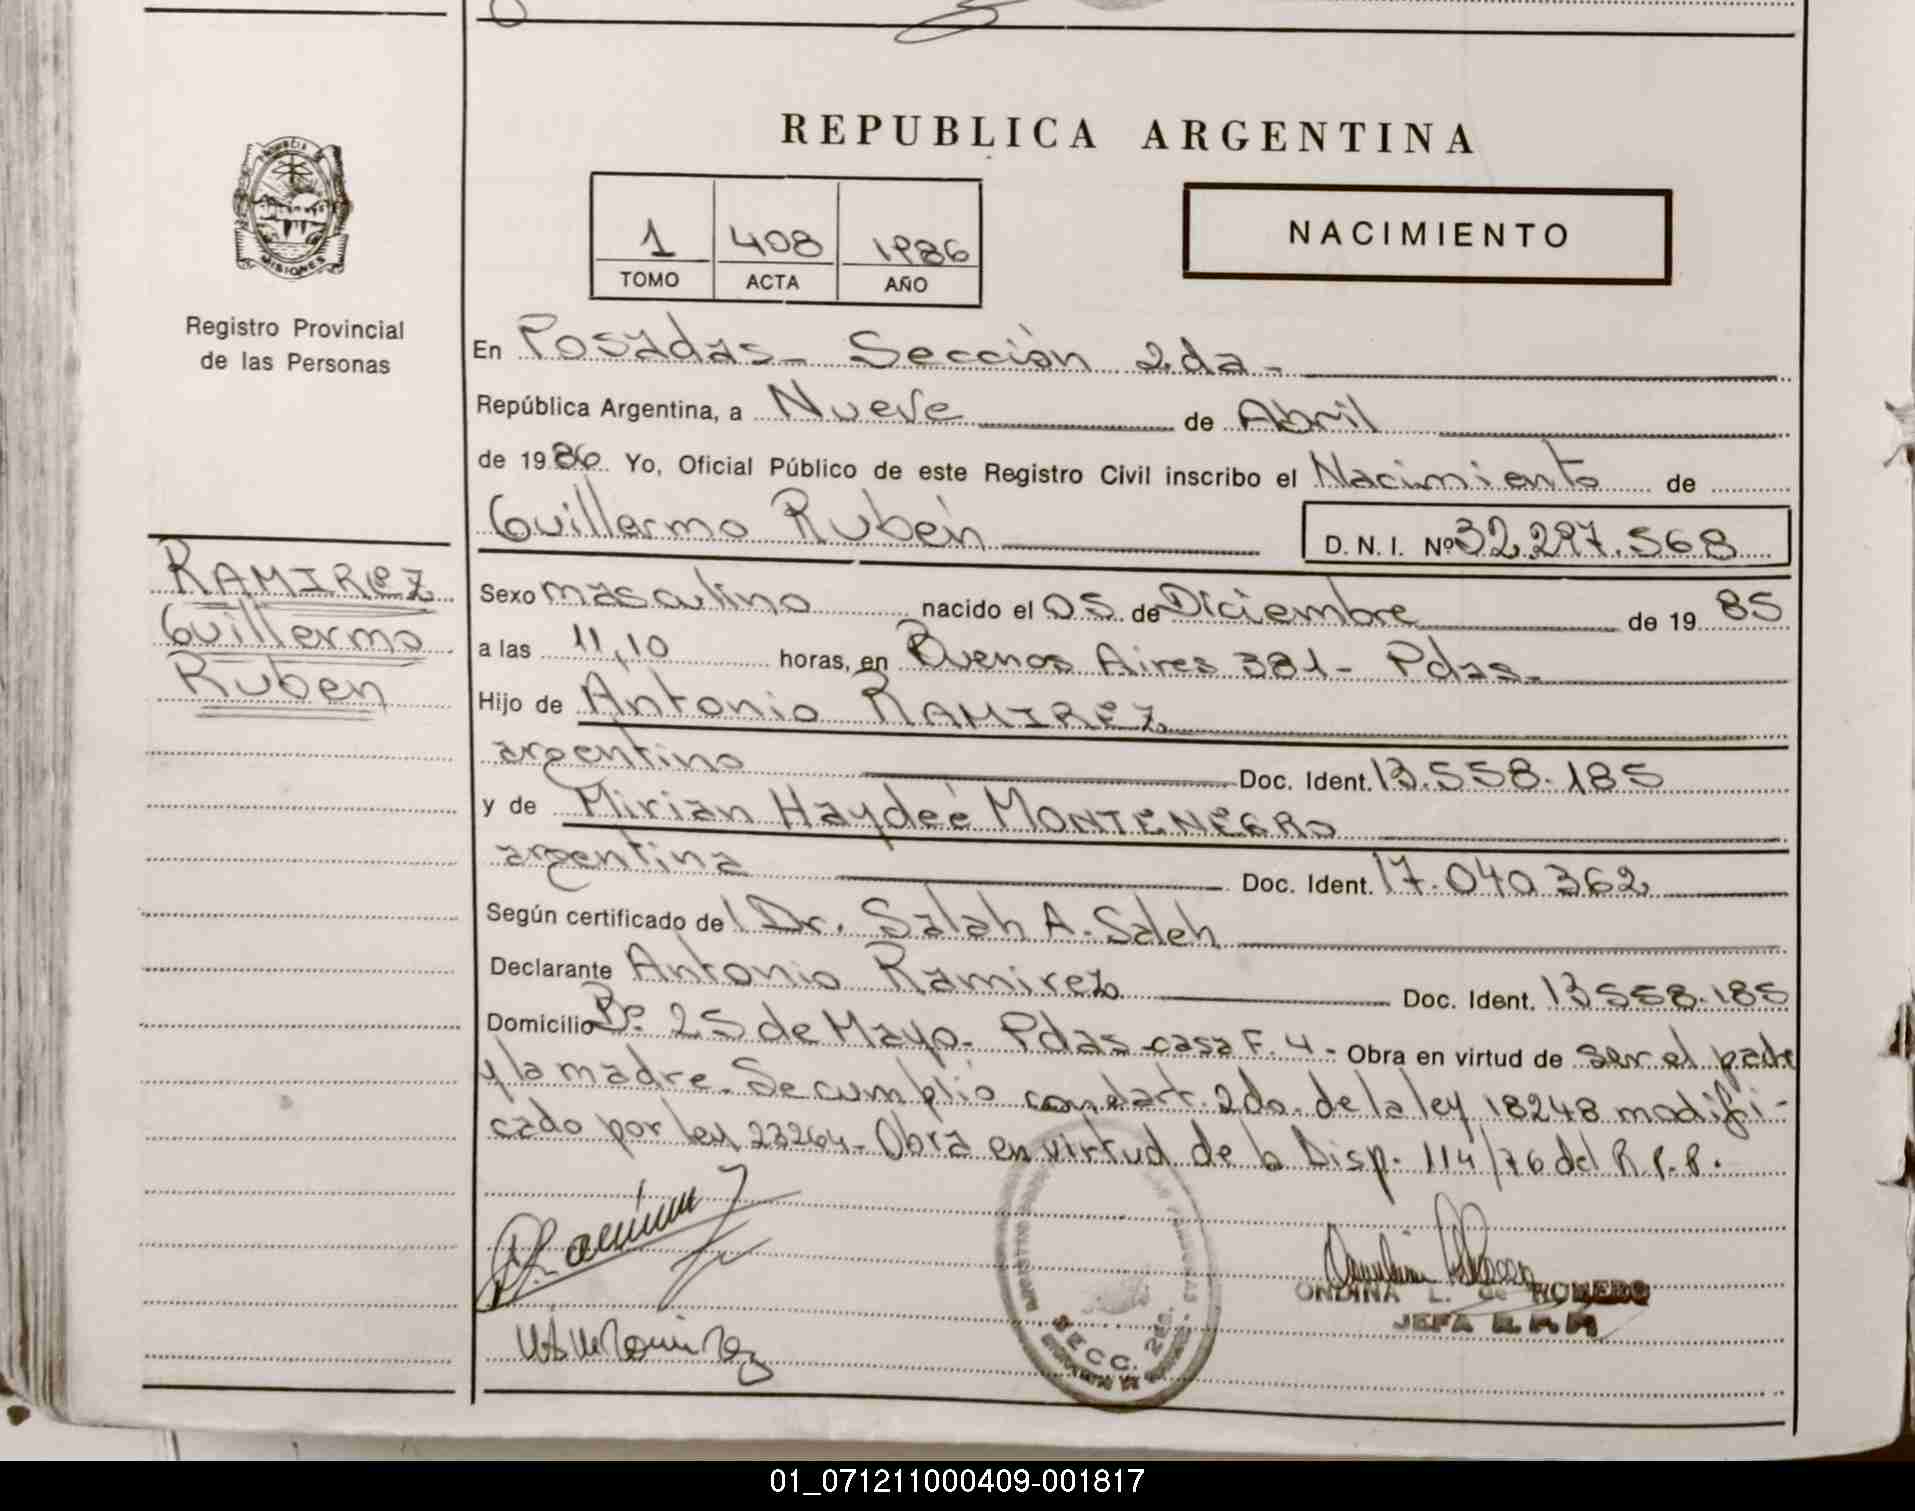 REPUBLICA ARGENTINA
PROVINCIA DE
MISIONES
Registro Provincial
de las Personas
1 408 1986
TOMO ACTA AÑO
NACIMIENTO
En Posadas - Sección 2da -
República Argentina, a Nueve de Abril
de 1986 Yo, Oficial Público de este Registro Civil inscribo el Nacimiento de
Guillermo Rubén
D. N. I. Nº 32.297.568
RAMIREZ
Guillermo
Ruben
Sexo masculino nacido el 05 de Diciembre de 19 85
a las 11,10 horas, en Buenos Aires 381 - Pdas -
Hijo de Antonio RAMIREZ
argentino Doc. Ident. 13.558.185
y de Mirian Haydeé MONTENEGRO
argentina Doc. Ident. 17.040.362
Según certificado de Dr. Salah A. Saleh
Declarante Antonio Ramirez Doc. Ident. 13.558.185
Domicilio Bº 25 de Mayo - Pdas casa F. 4 - Obra en virtud de ser el padre
y la madre. Se cumplió con el art. 2do. de la ley 18248 modifi-
cado por ley 23264 - Obra en virtud de la Disp. 114/76 del R.P.P.
SECC. 2da.
ONDINA L. de ROMERO
JEFA R.P.P.
01_071211000409-001817